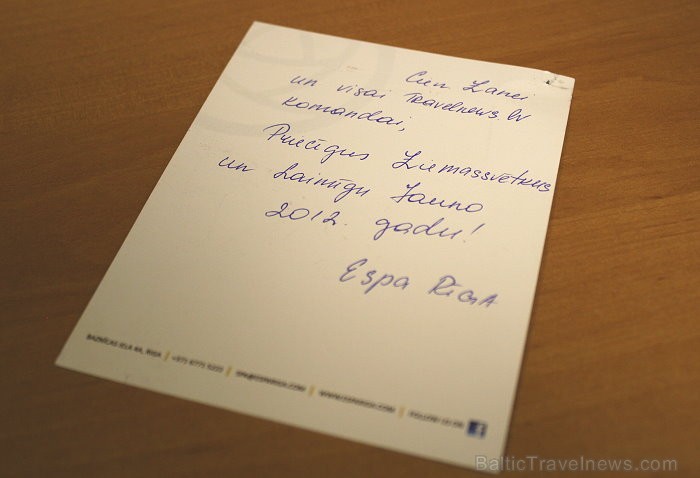 Cien. Lanei
un visai Travelnews.lv
komandai,
Priecīgus Ziemassvētkus
un Laimīgu Jauno
2012. gadu!
Espa Rīga
BAZNĪCAS IELA 4A, RIGA | +371 6771 5222 | SPA@ESPARIGA.COM | WWW.ESPARIGA.COM | FOLLOW US ON f
BalticTravelnews.com